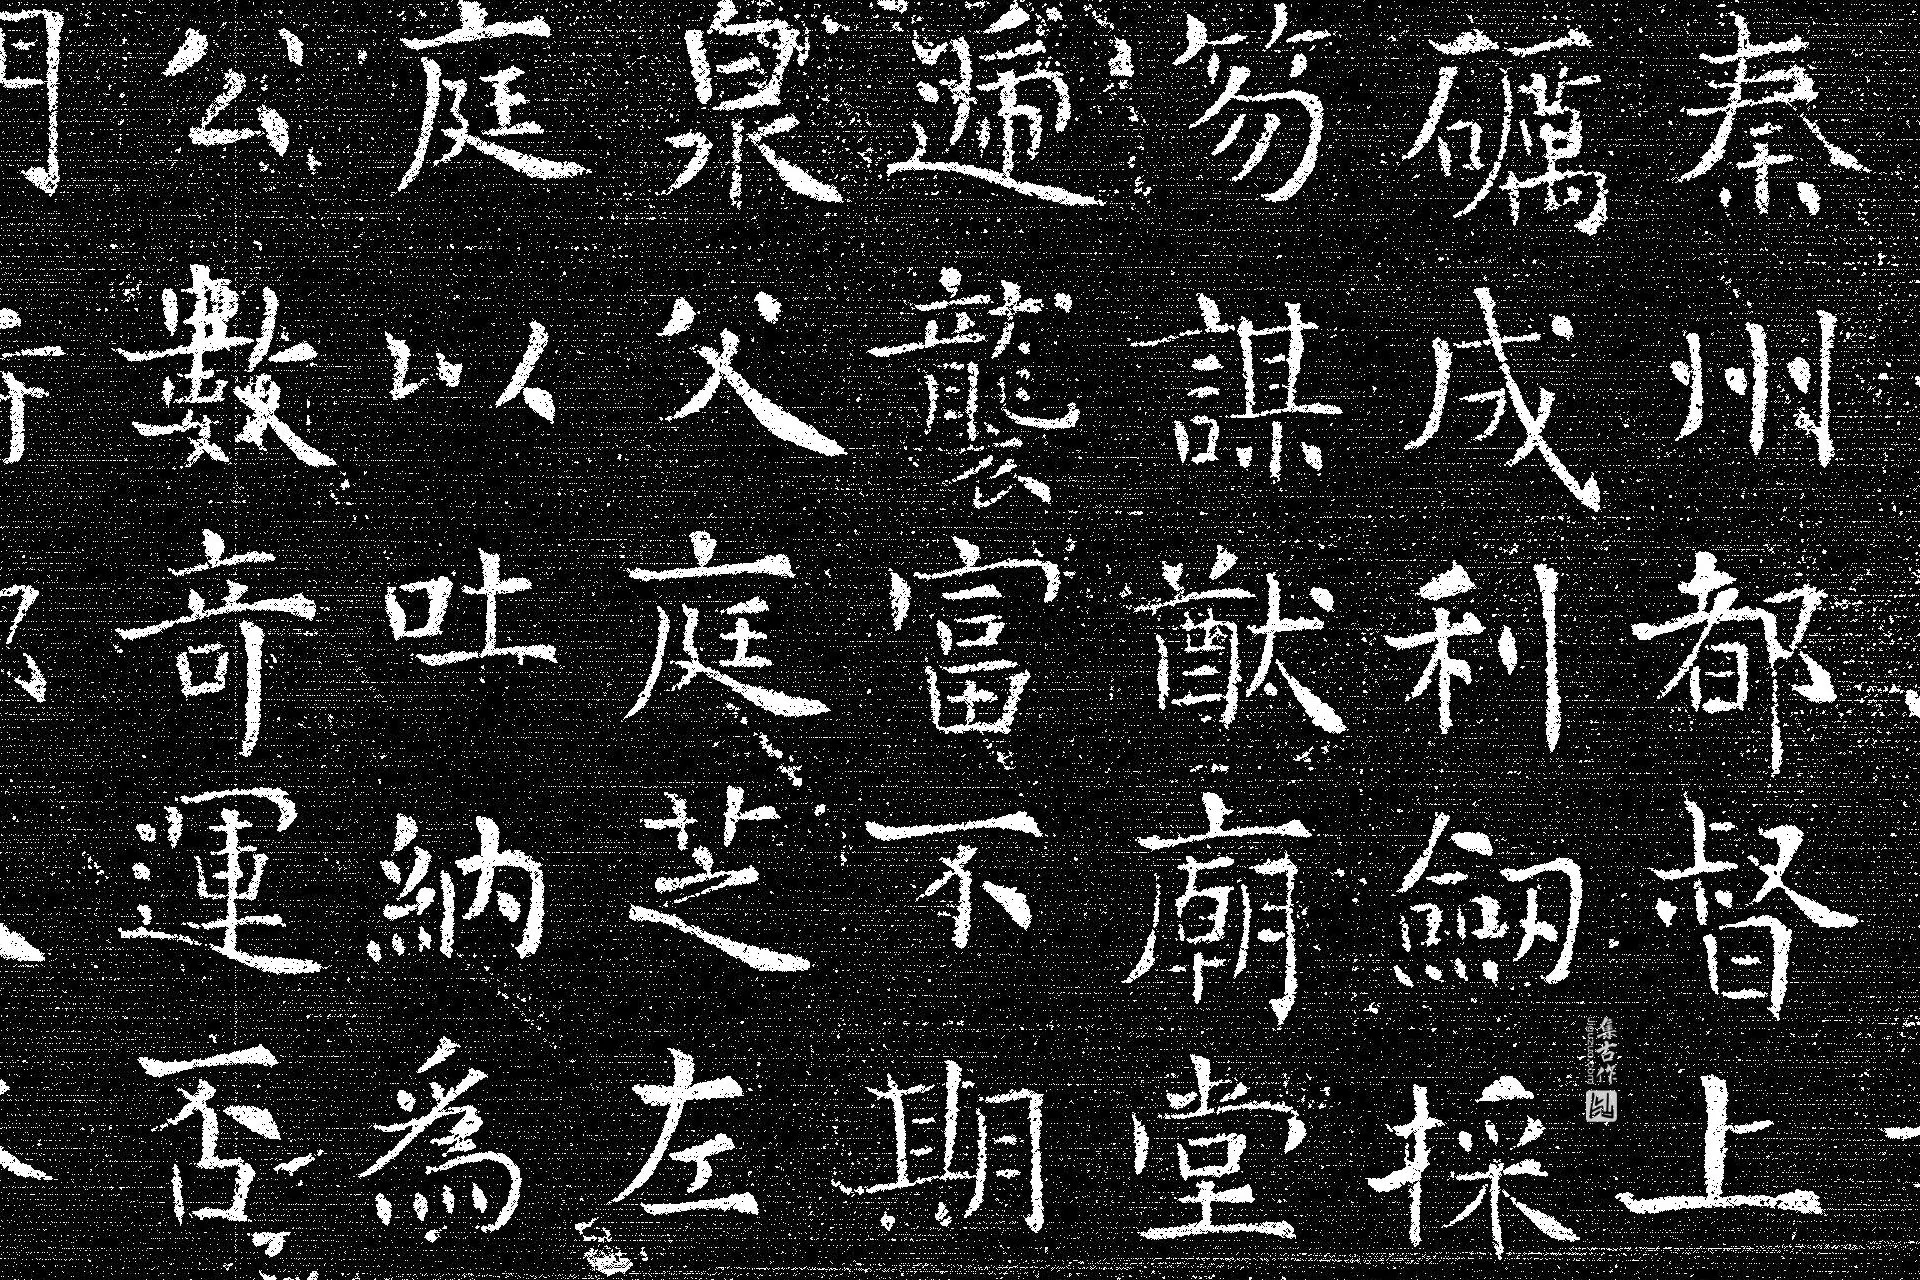 秦州都督上
礪成利劒採
笏謀猷廟堂
遞襲富不期
泉父庭芝左
庭以吐納為
公數奇運否
集古作